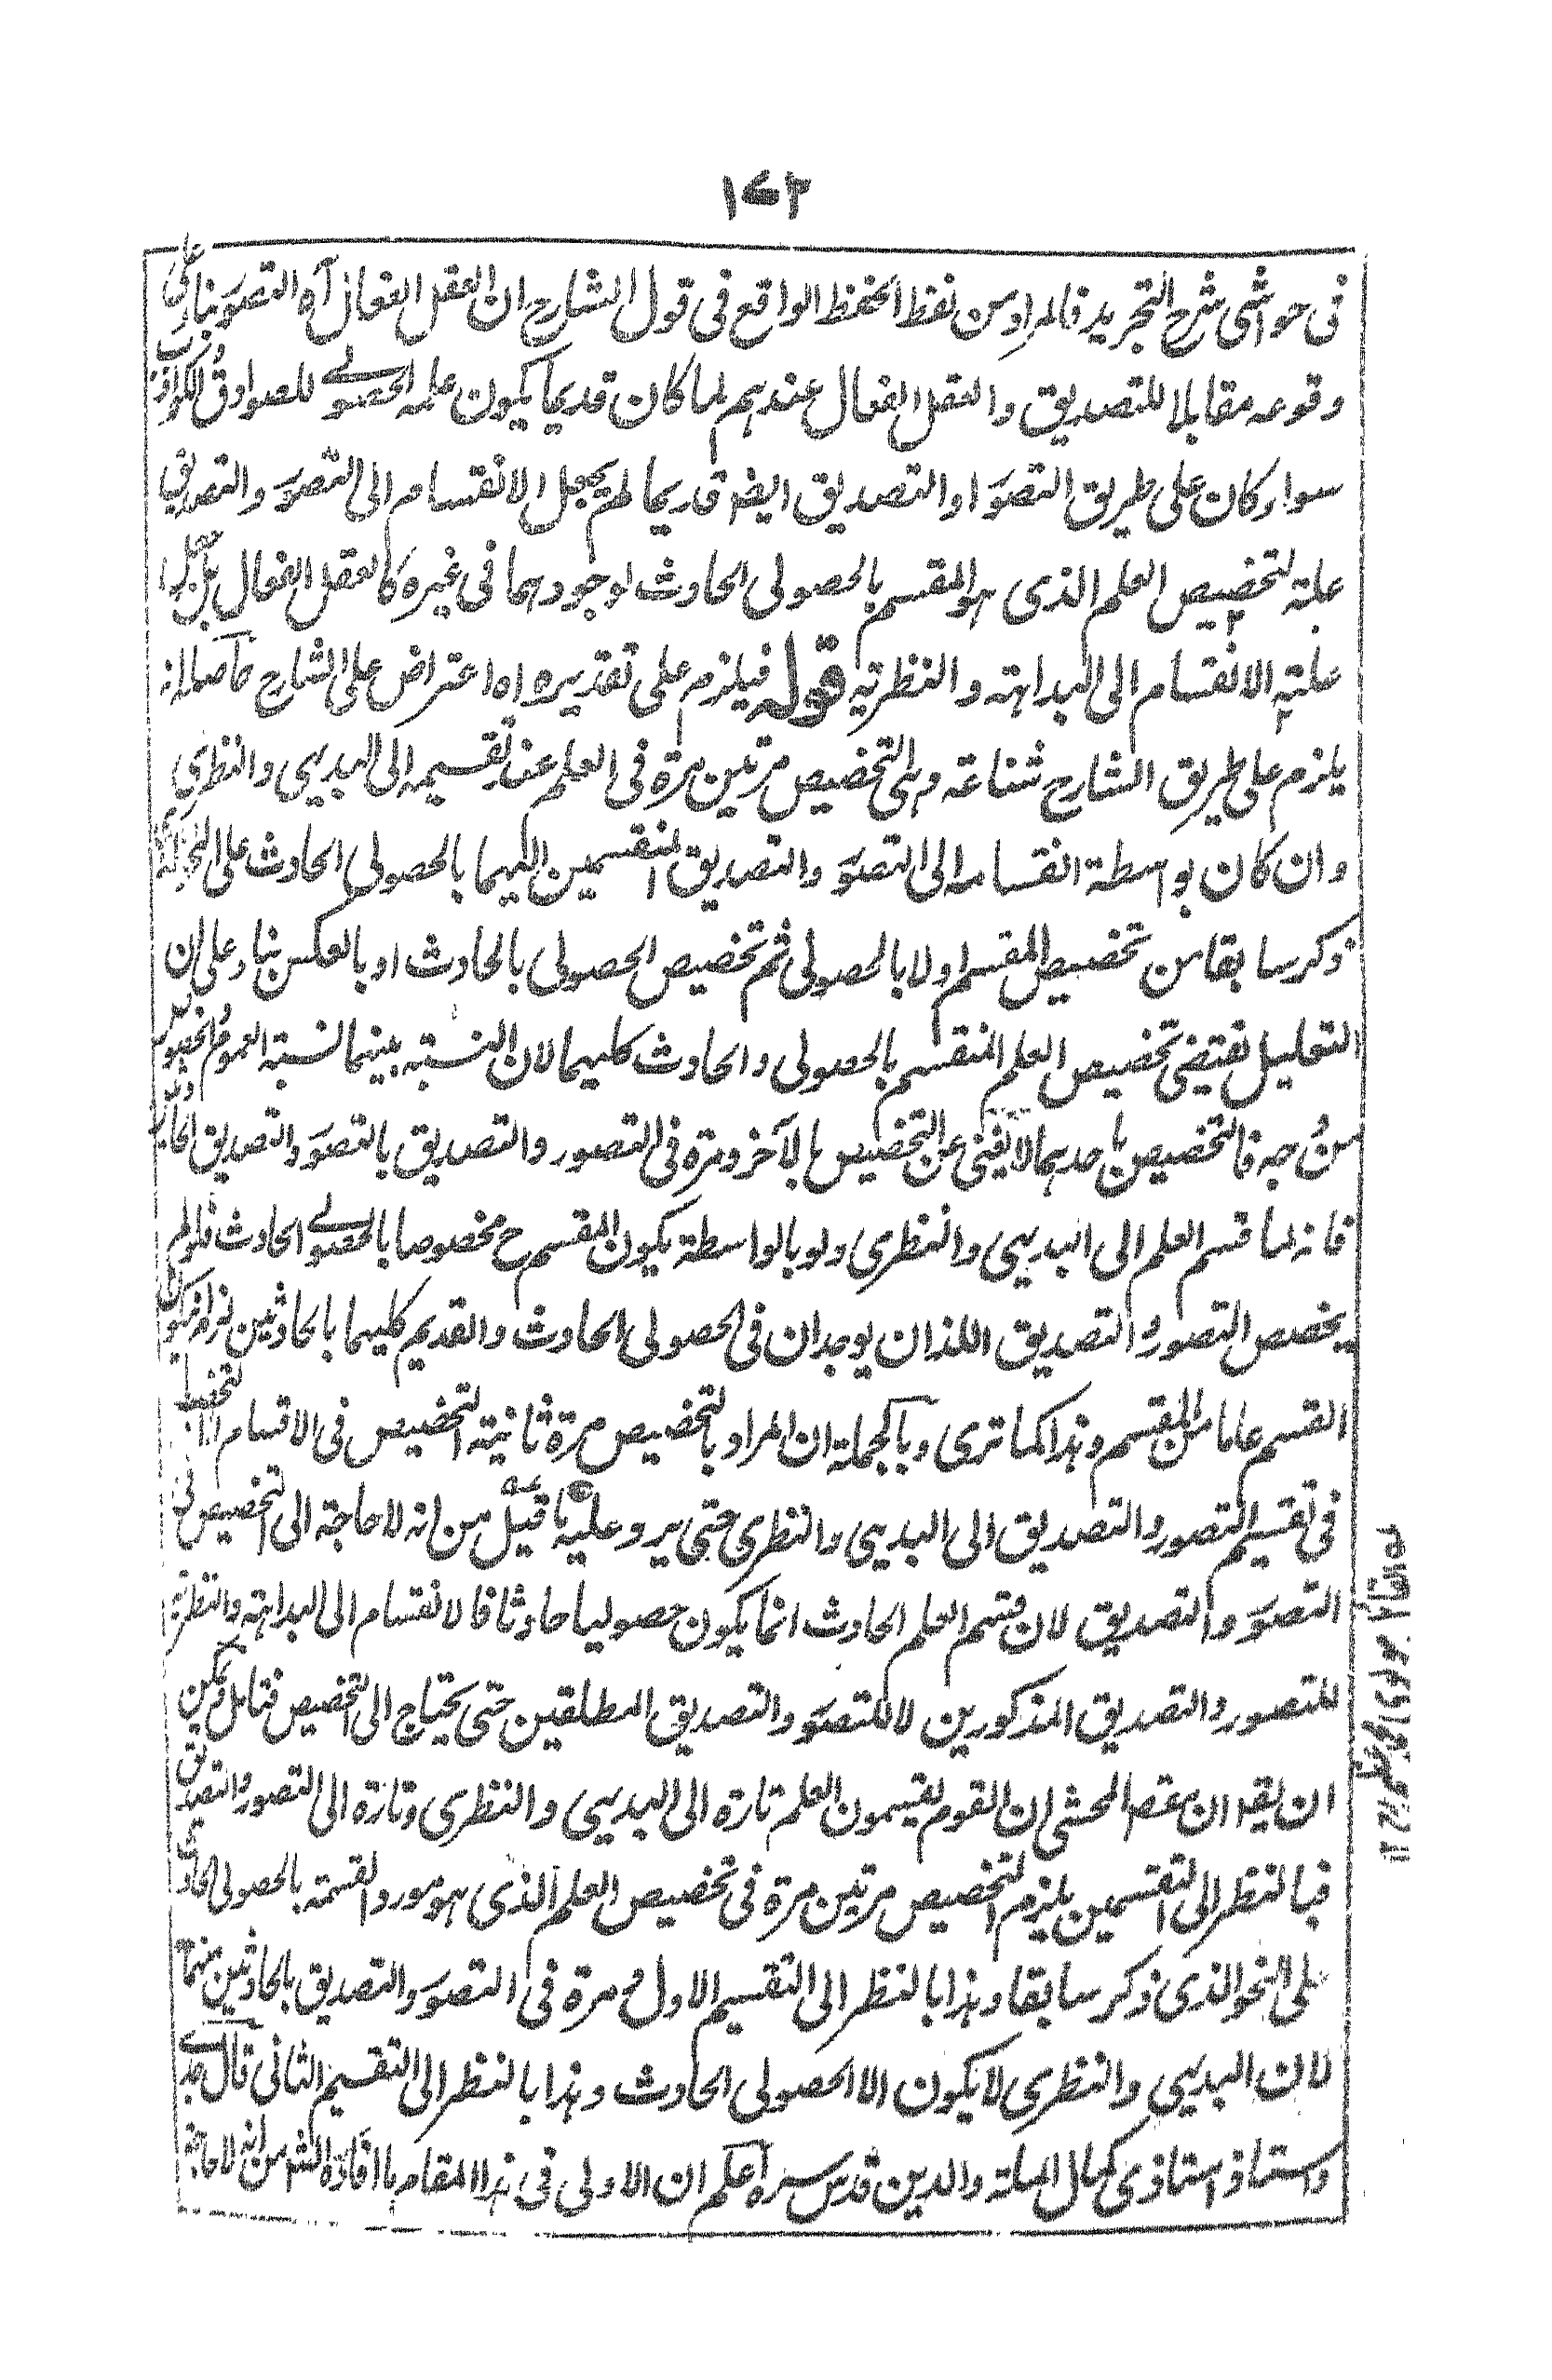 ۱۷۲
فى حواشى شرح التجريد فالمراد من لفظ الحفظ الواقع فى قول الشارح ان العقل الفعال آه التصور بناء على
وقوعه مقابلا للتصديق والعقل الفعال عندهم لما كان قديما يكون علمه الحصولى للصوادق والكواذب
سواء كان على طريق التصور او التصديق ايضا قديما لم يجعل الانقسام الى التصور والتصديق
علة لتخصيص العلم الذى هو المقسم بالحصولى الحادث لوجودهما فى غيره كالعقل الفعال بل جعل
علته الانقسام الى البداهة والنظرية قوله فيلزم على تقديره اه اعتراض على الشارح حاصله انه
يلزم على طريق الشارح شناعة وهى التخصيص مرتين مرة فى العلم عند تقسيمه الى البديهى والنظرى
وان كان بواسطة انقسامه الى التصور والتصديق المنقسمين اليهما بالحصولى الحادث على النحو الذى
ذكر سابقا من تخصيص المقسم اولا بالحصولى ثم تخصيص الحصولى بالحادث او بالعكس بناء على ان
التعليل يقتضى تخصيص العلم المنقسم بالحصولى والحادث كليهما لان النسبة بينهما نسبة العموم والخصوص
من وجه فالتخصيص باحدهما لا يغنى عن التخصيص بالآخر ومرة فى التصور والتصديق بالتصور والتصديق الحادثين
فانه لما قسم العلم الى البديهى والنظرى ولو بالواسطة يكون المقسم ح مخصوصا بالحصولى الحادث فلو لم
يخصص التصور والتصديق اللذان يوجدان فى الحصولى الحادث والقديم كليهما بالحادثين لزم ان يكون
القسم عاما من المقسم وهذا كما ترى وبالجملة ان المراد بالتخصيص مرة ثانية التخصيص فى الاقسام لا التخصيص
فى تقسيم التصور والتصديق الى البديهى والنظرى حتى يرد عليه ما قيل من انه لا حاجة الى التخصيص فى
التصور والتصديق لان قسم العلم الحادث انما يكون حصوليا حادثا فالانقسام الى البداهة والنظرية
للتصور والتصديق المذكورين لا للتصور والتصديق المطلقين حتى يحتاج الى التخصيص فتامل ويمكن
ان يقه ان غرض المحشى ان القوم يقسمون العلم تارة الى البديهى والنظرى وتارة الى التصور والتصديق
فبالنظر الى التقسمين يلزم التخصيص مرتين مرة فى تخصيص العلم الذى هو مورد القسمة بالحصولى الحادث
على النحو الذى ذكر سابقا وهذا بالنظر الى التقسيم الاول ومرة فى التصور والتصديق بالحادثين منهما
لان البديهى والنظرى لا يكون الا الحصولى الحادث وهذا بالنظر الى التقسيم الثانى قال جدى
واستاذ استاذى كمال الملة والدين قدس سره اعلم ان الاولى فى هذا المقام ما افاده الشه من انه لا حاجة